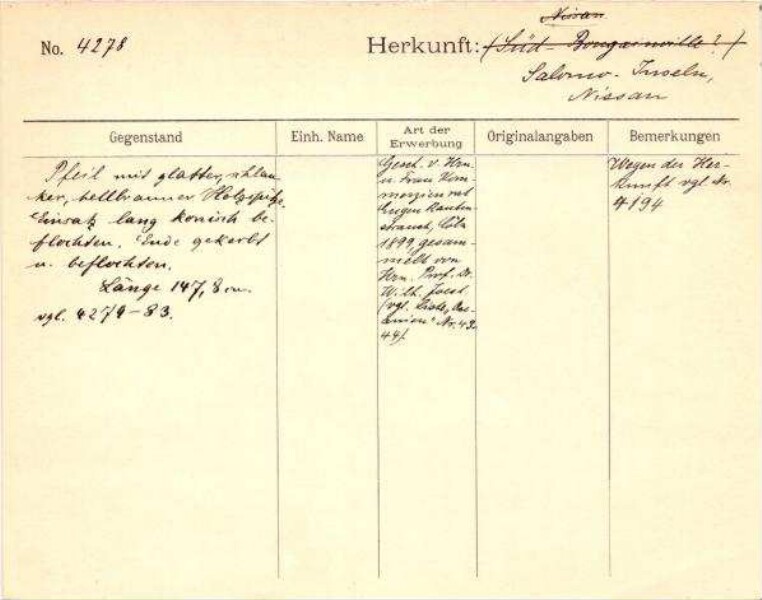 Nissan
No. 4278
Herkunft: (Süd-Bougainville?)
Salomo-Inseln,
Nissan
Gegenstand
Einh. Name
Art der
Erwerbung
Originalangaben
Bemerkungen
Pfeil mit glatter, schlan-
ker, hellbrauner Holzspitze.
Einsatz lang konisch be-
flochten. Ende gekerbt
u. beflochten.
Länge 147,8 cm.
vgl. 4279-83.
Gesch. v. Hrn.
u. Frau Kom-
merzienrat
Eugen Rauten-
strauch, Cöln
1899, gesam-
melt von
Hrn. Prof. Dr.
Wilh. Joest
(vgl. Liste
Nr. 43.
44).
Wegen der Her-
kunft vgl. Nr.
4194